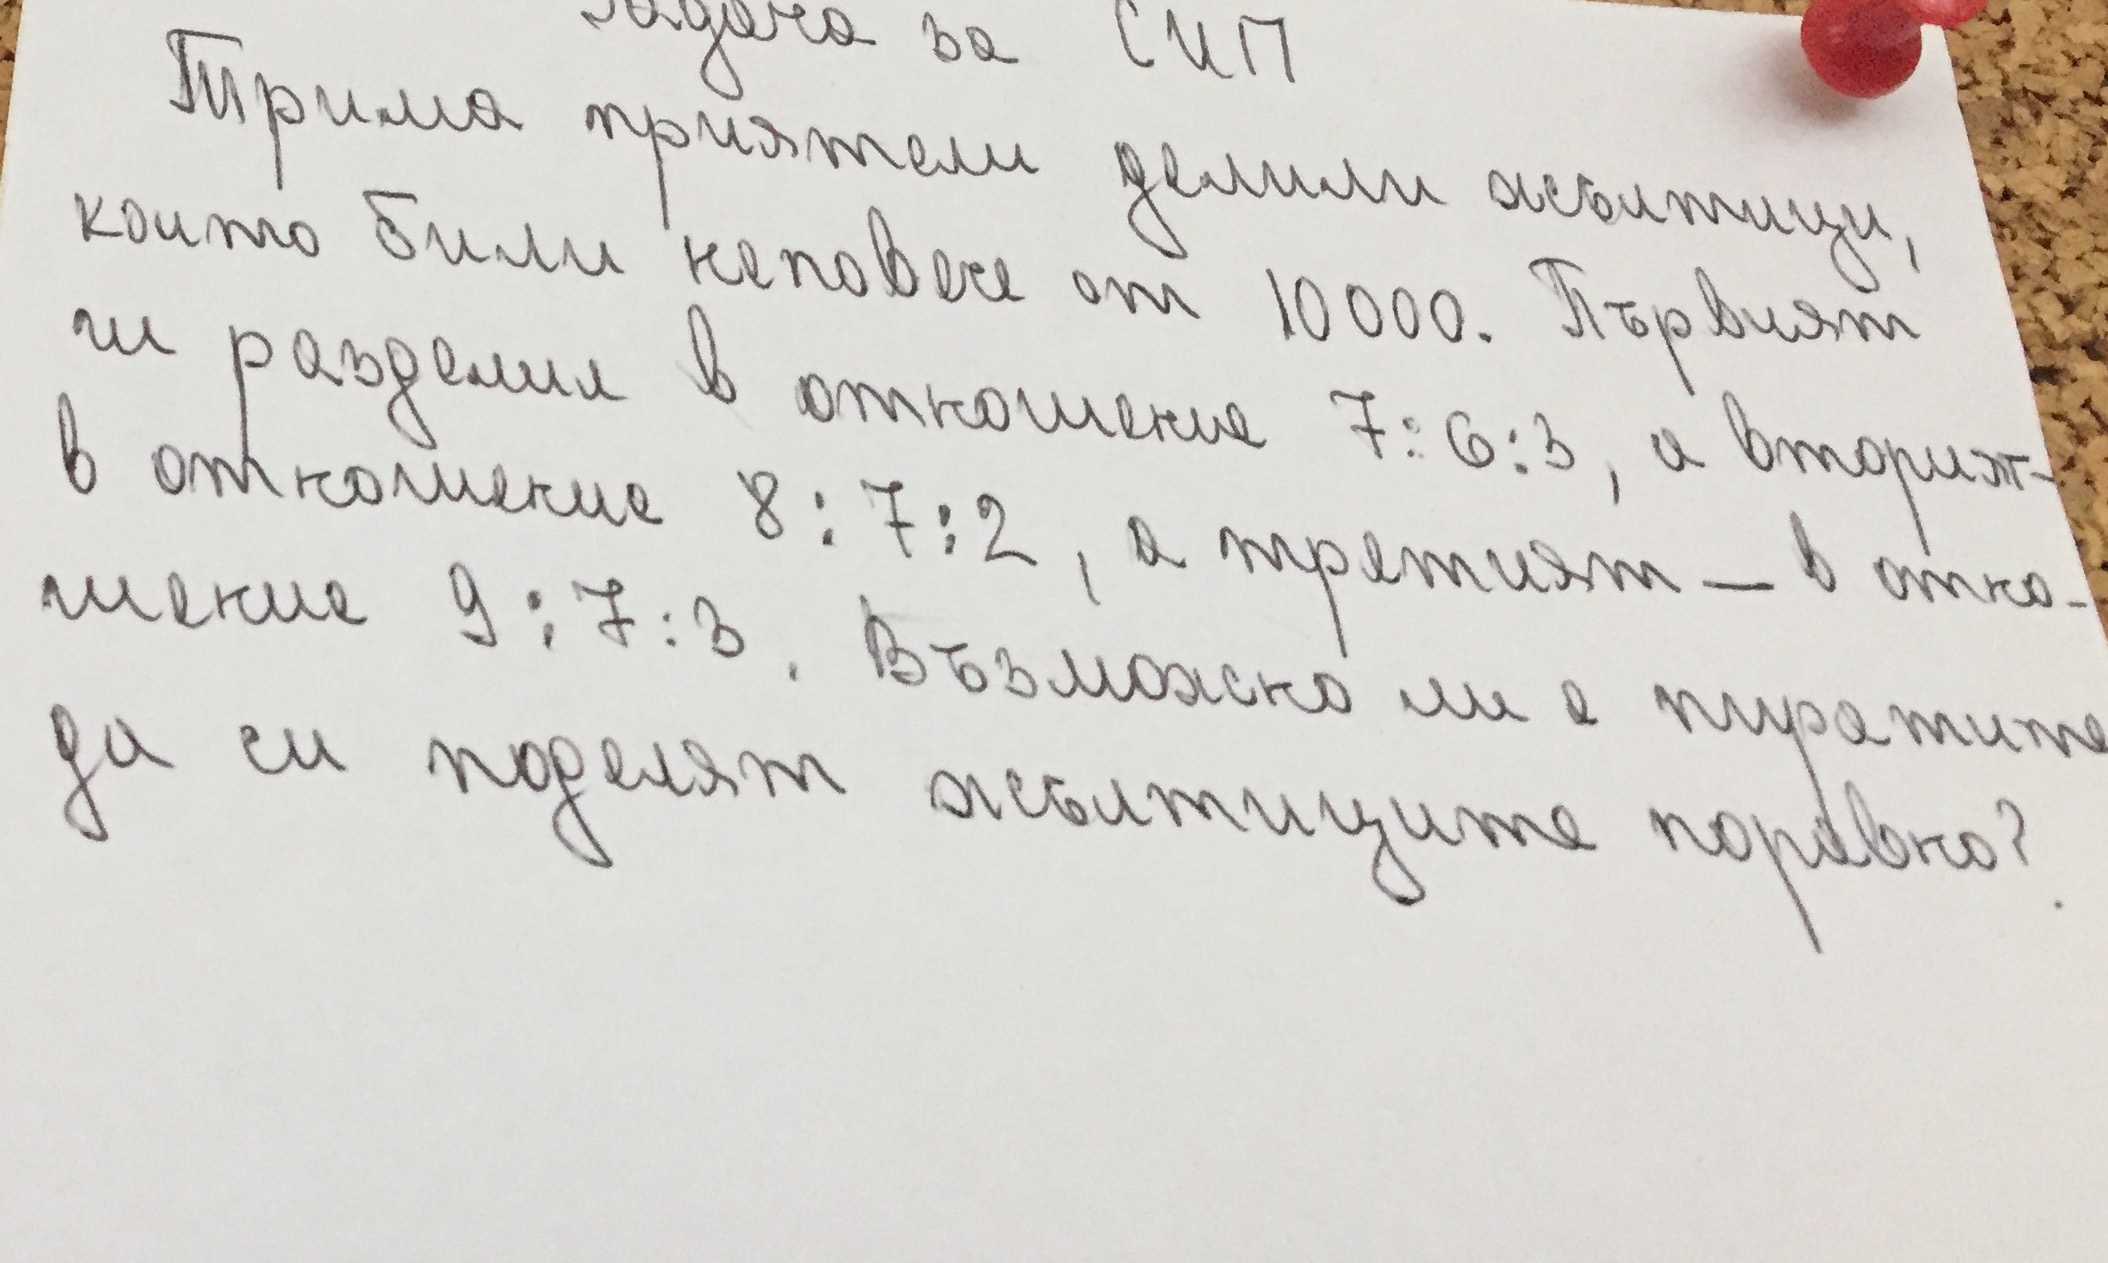 Задача за СИП
Трима приятели делили жълтици,
които били неповече от 10000. Първият
ги разделил в отношение 7:6:3, а вторият-
в отношение 8:7:2, а третият — в отно-
шение 9:7:3. Възможно ли е пиратите
да си поделят жълтиците поравно?